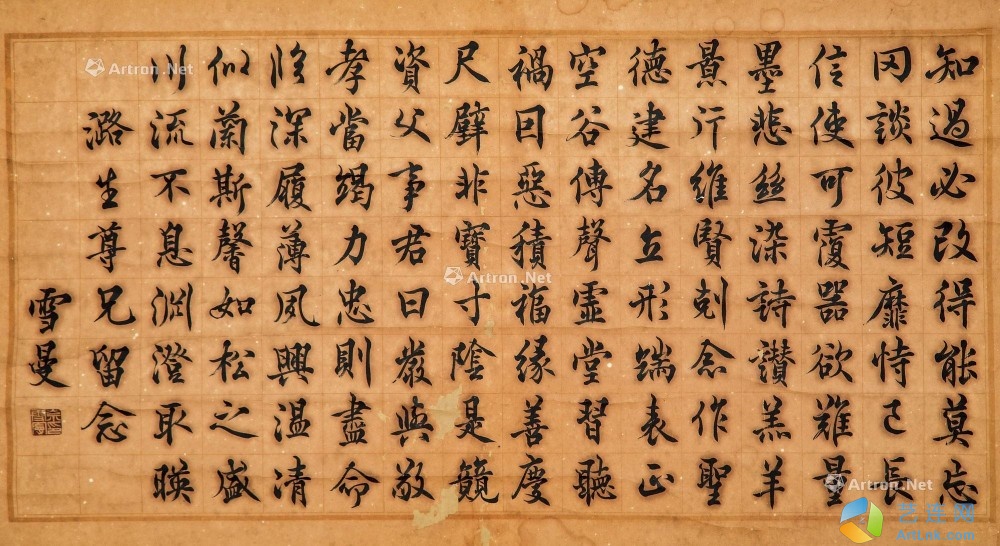 知過必改得能莫忘
罔談彼短靡恃己長
信使可覆器欲難量
墨悲絲染詩讚羔羊
景行維賢剋念作聖
德建名立形端表正
空谷傳聲虛堂習聽
禍因惡積福緣善慶
尺璧非寶寸陰是競
資父事君曰嚴與敬
孝當竭力忠則盡命
臨深履薄夙興溫凊
似蘭斯馨如松之盛
川流不息淵澄取暎
潞生尊兄留念
雪曼
Artron.Net
Artron.Net
Artron.Net
艺连网
ArtLxw.com